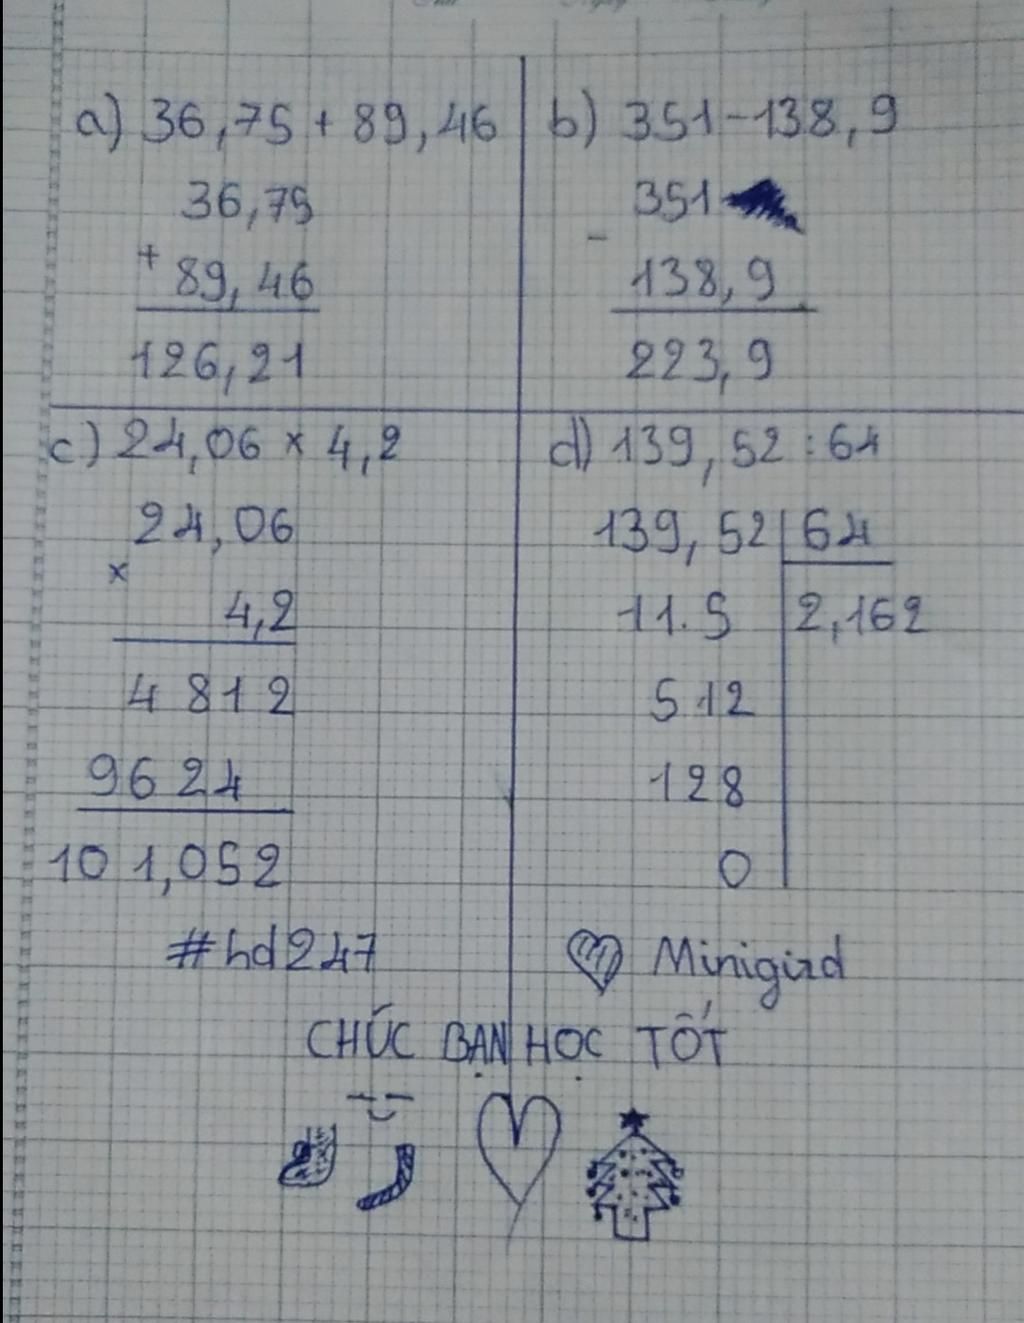 a) 36,75 + 89,46
36,75
+
89,46
126,21
b) 351-138,9
351
-
138,9
223,9
c) 24,06 x 4,2
24,06
x
4,2
4 8 1 2
9 6 2 4
10 1,052
d) 139,52 : 64
139,52 64
11.5 2,162
512
128
0
#hd247
Minigizd
CHÚC BẠN HỌC TỐT